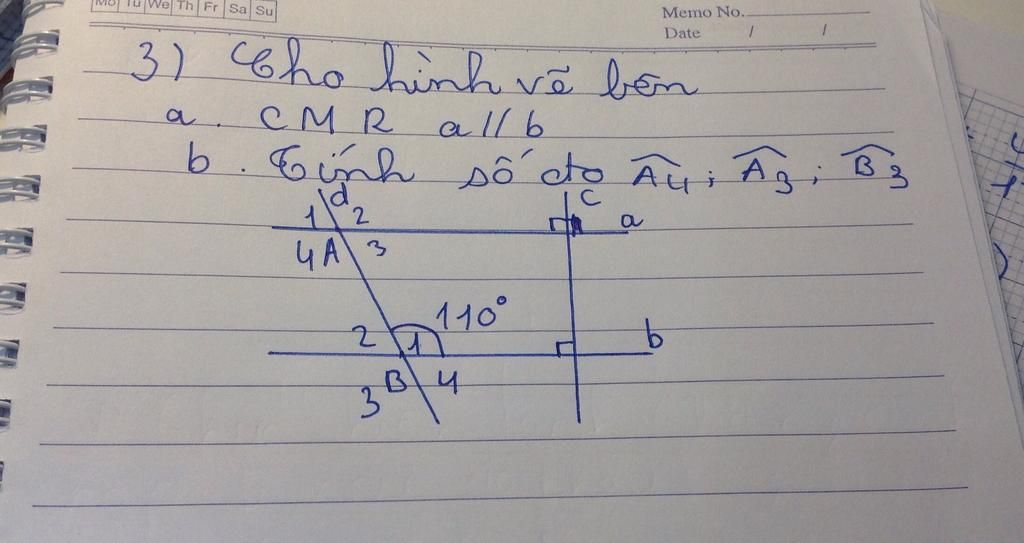 Mo Tu We Th Fr Sa Su
Memo No.
Date / /
3) Cho hình vẽ bên
a. CMR a // b
b. Tính số đo A4; A3; B3
d c
1 2 a
4 A 3
110°
2 1 b
B 4
3